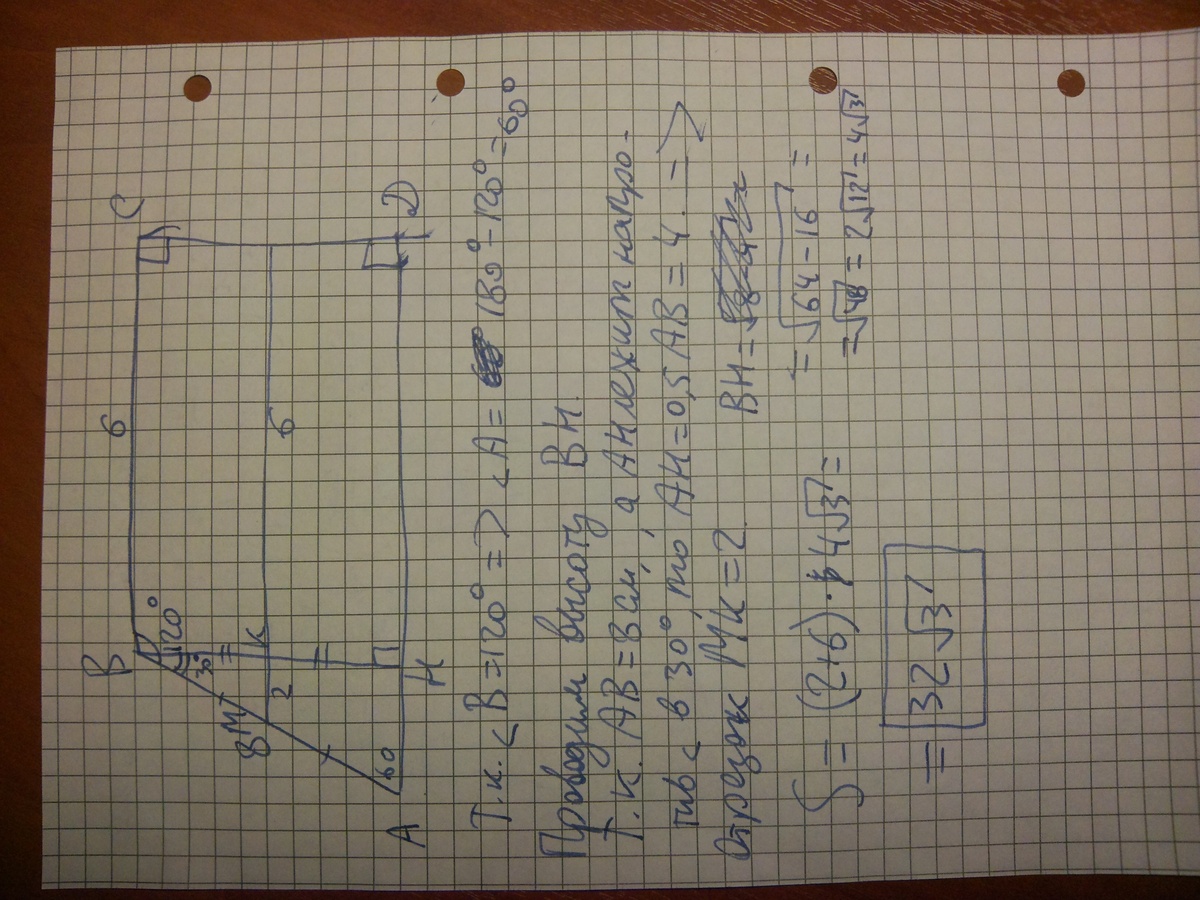 B 6 C
120°
30°
8 M 2 K 6
60
A H D
Т.к. <B=120° => <A= 180°-120°=60°
Проводим высоту BH.
Т.к. AB=8см, а AH лежит напро-
тив < в 30°, то AH=0,5AB=4. =>
Отрезок MK=2. BH=
=√64-16 =
=√48=2√12=4√3
S = (2+6)·4√3=
= 32√3